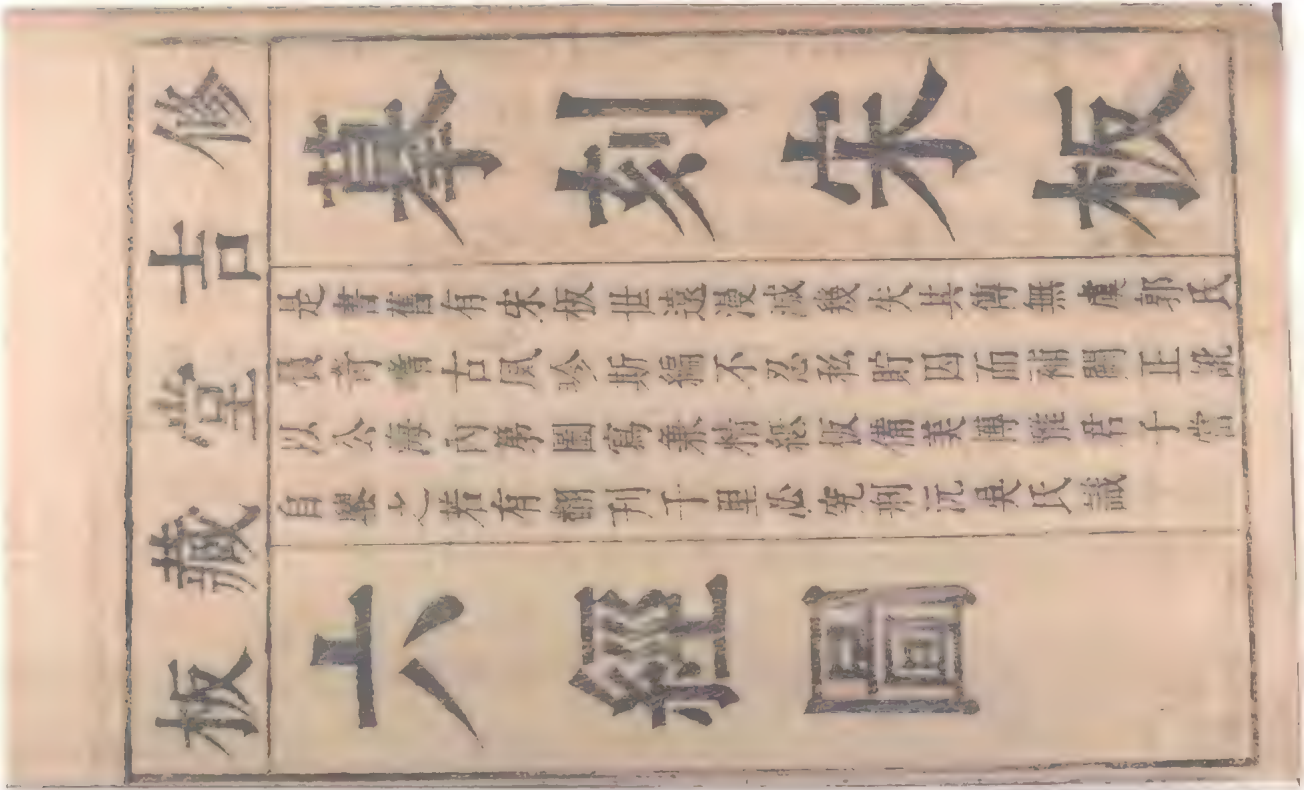 修吉堂藏板
摹刻宋板
是書舊有宋板世遠漫滅幾失其傳無虞郭氏
古夙珍斯編不忍私貯因而補闕正訛
以公海內第圖寫兼精板備美博雅君子當
自鑒之若有翻刊千里必究吳氏識
六經圖